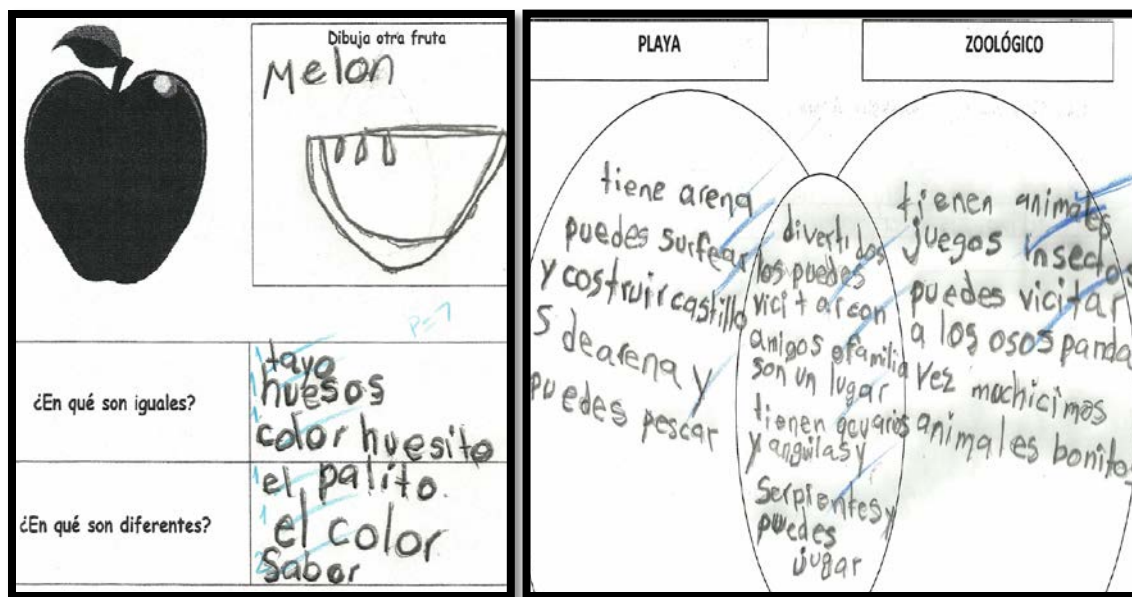 Dibuja otra fruta
Melon
P=7
¿En qué son iguales?
1 tayo
1 huesos
1 color huesito
¿En qué son diferentes?
1 el palito.
1 el color
2 Sabor
PLAYA
ZOOLÓGICO
tiene arena
puedes surfear
y costruir castillo
s de arena y
puedes pescar
divertidos
los puedes
vicitar con
amigos o familia
son un lugar
tienen acuarios
y anguilas y
Serpientes y
puedes
jugar
tienen animales
juegos insectos
puedes vicitar
a los osos panda
vez muchicimos
animales bonitos